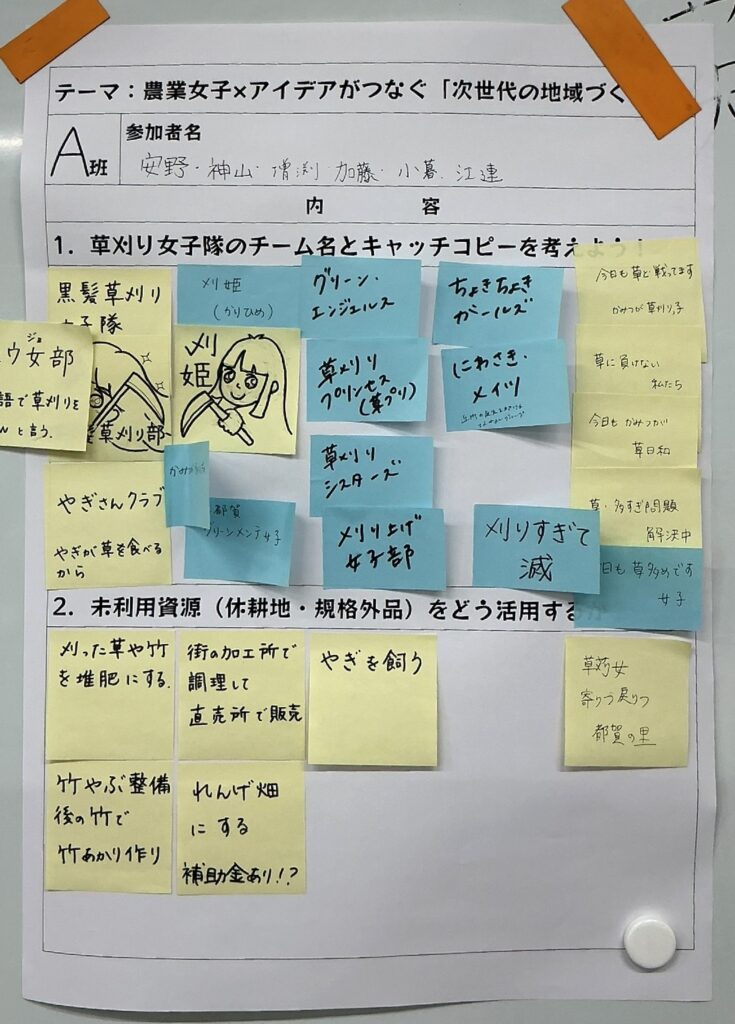 テーマ：農業女子×アイデアがつなぐ「次世代の地域づく
A班
参加者名
安野・神山・増渕・加藤・小暮・江連
内 容
1．草刈り女子隊のチーム名とキャッチコピーを考えよう！
黒髪草刈り
女子隊
ジョ
ウ女部
語で草刈りを
と言う.
髪草刈り部
やぎさんクラブ
やぎが草を食べる
から
刈姫
(かりひめ)
刈
姫
かみつが
都賀
グリーンメンテ女子
グリーン・
エンジェルス
草刈り
プリンセス
(草プリ)
草刈り
シスターズ
刈り上げ
女子部
ちょきちょき
ガールズ
にわさき・
メイツ
刈りすぎて
滅
今日も草と戦ってます
かみつが草刈り子
草に負けない
私たち
今日も かみつが
草日和
草・多すぎ問題
解決中
今日も 草多めです
女子
2．未利用資源（休耕地・規格外品）をどう活用する
刈った草や竹
を堆肥にする.
街の加工所で
調理して
直売所で販売
やぎを飼う
草刈女
寄りつ戻りつ
都賀の里
竹やぶ整備
後の竹で
竹あかり作り
れんげ畑
にする
補助金あり!?